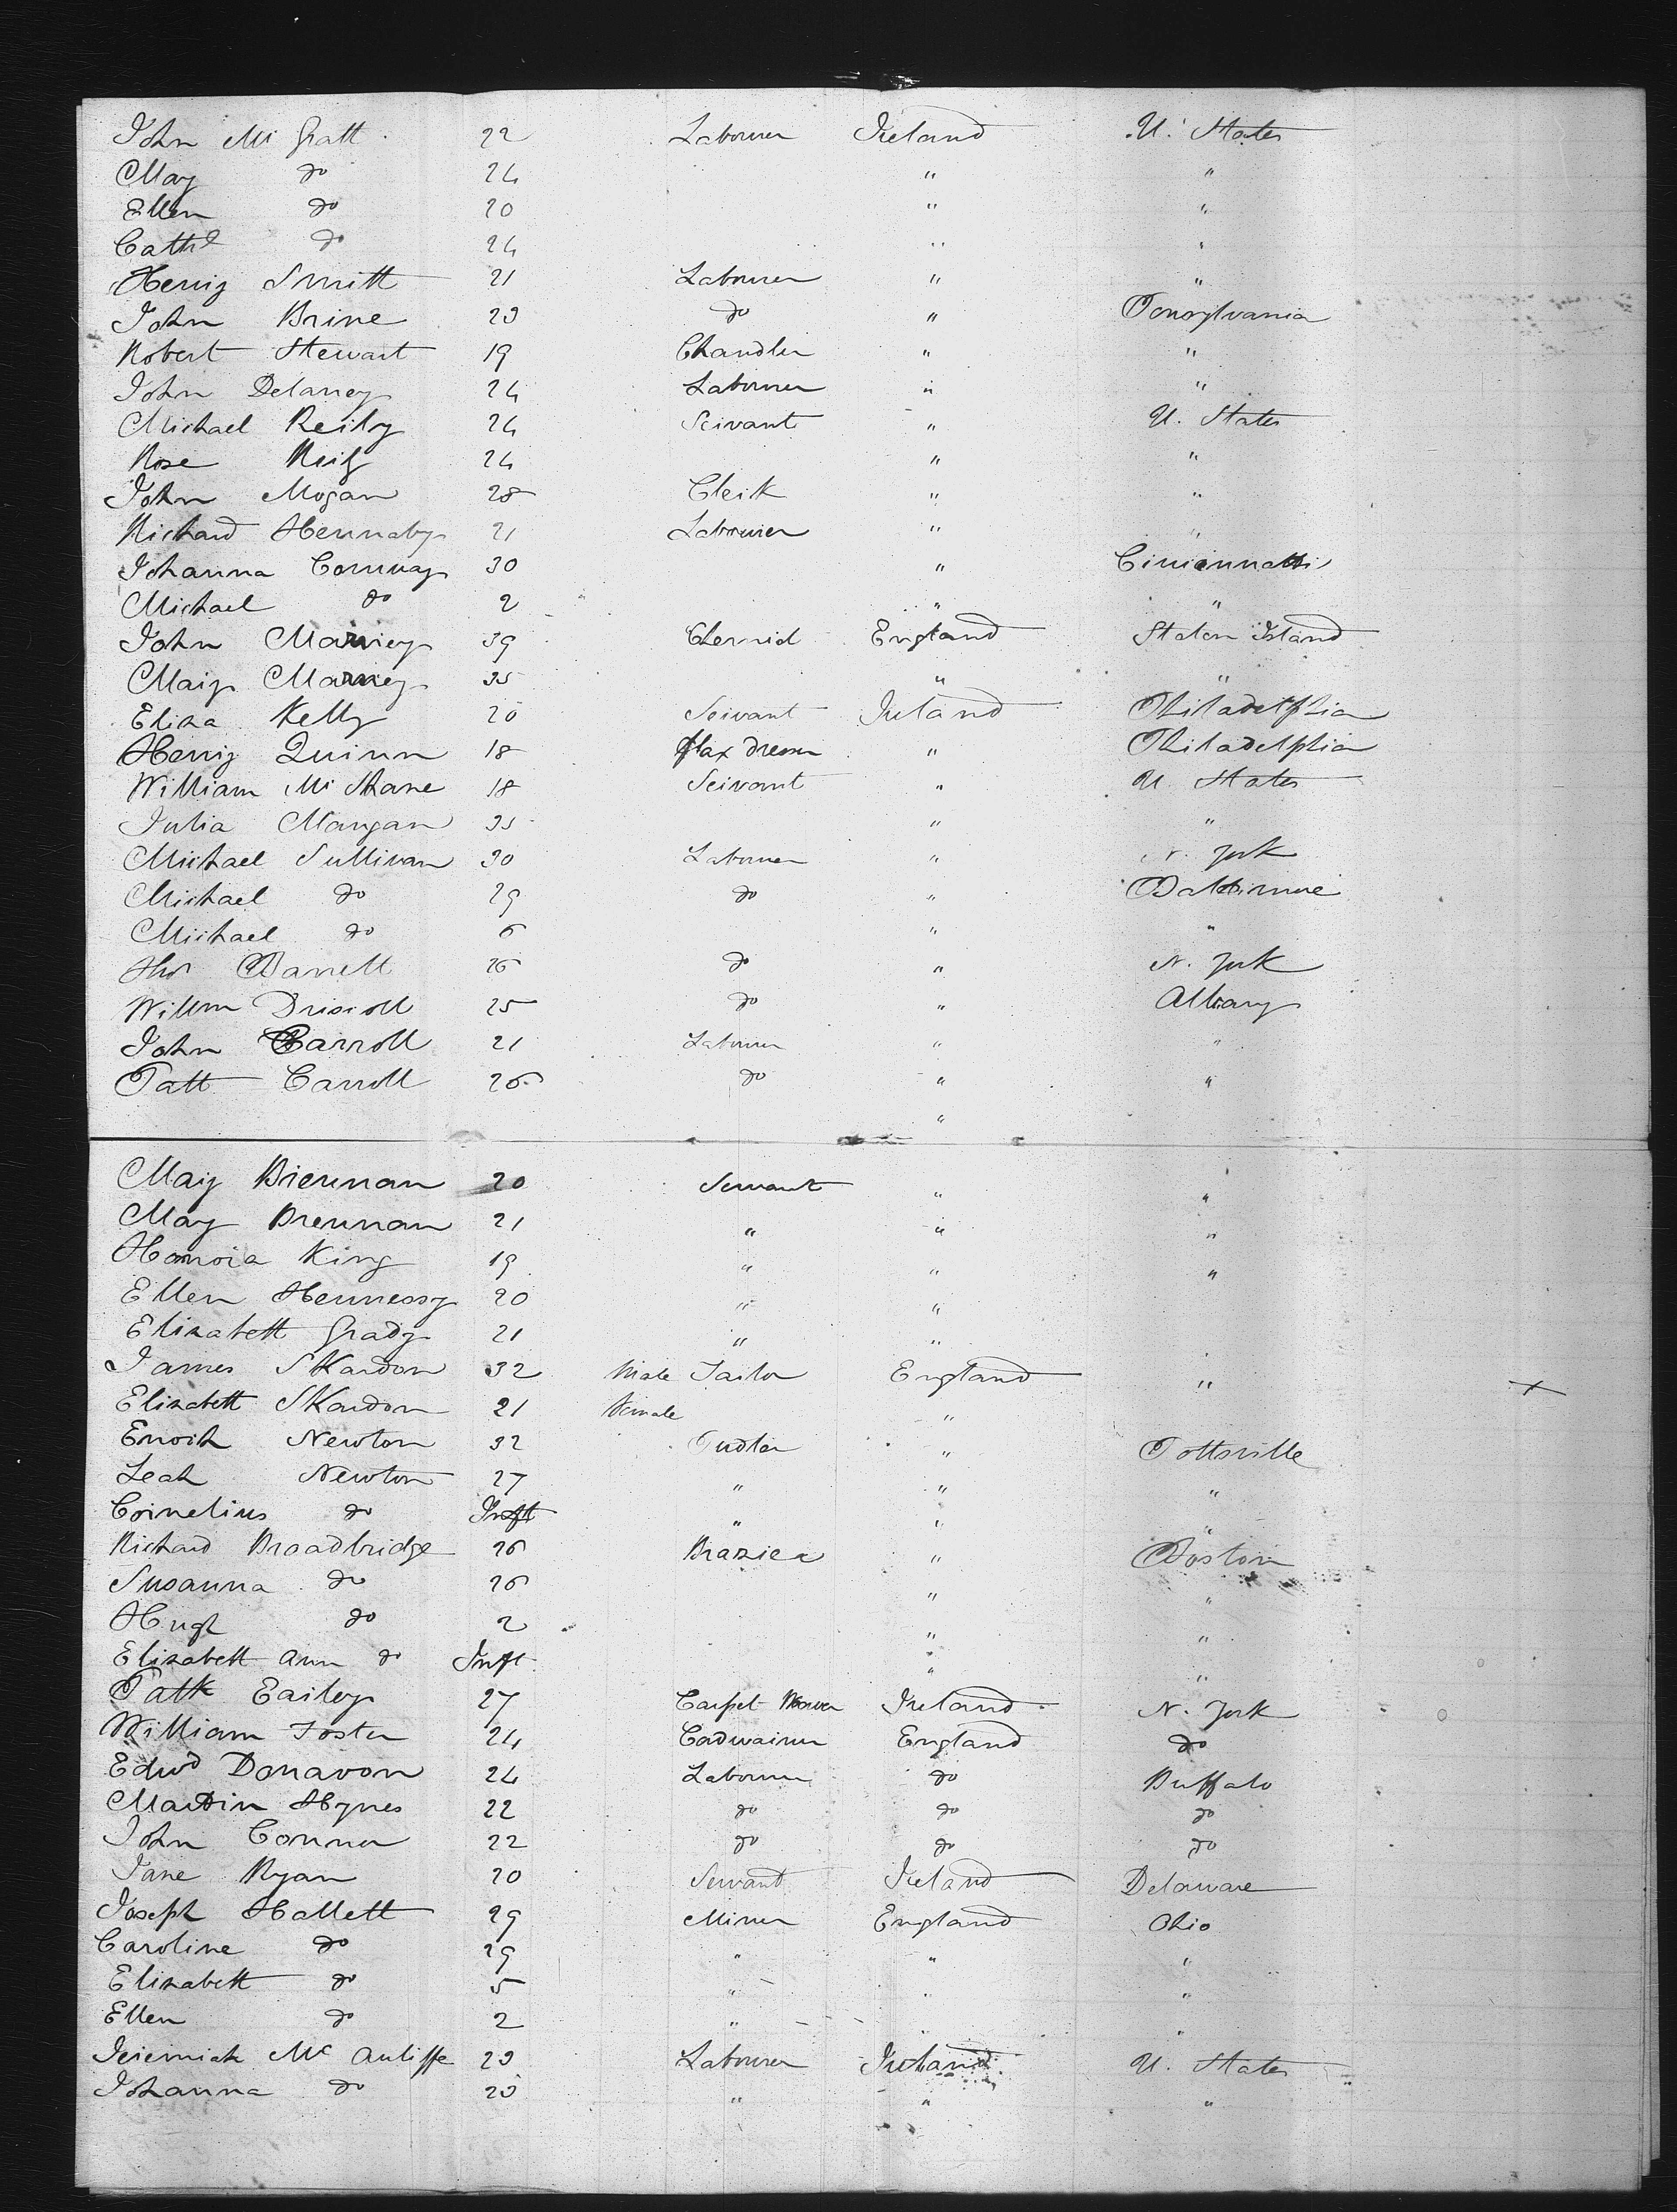 John Mc Gratt 22 Labourer Ireland U. States
Mary do 24 " "
Ellen do 20 " "
Cathe do 24 " "
Henry Smitt 21 Labourer " "
John Brine 23 do " Pensylvania
Robert Stewart 19 Chandler " "
John Delaney 24 Labourer " "
Michael Reily 24 Servant " U. States
Rose Reily 24 " "
John Mogan 28 Clerk " "
Richard Hennaby 21 Labourer " "
Johanna Conway 30 " Cincinnatti
Michael do 2 " "
John Marney 39 Chemist England Staten Island
Mary Marney 35 " "
Eliza Kelly 20 Servant Ireland Philadelphia
Henry Quinn 18 flax dresser " Philadelphia
William Mc Shane 18 Servant " U. States
Julia Mangan 35 " "
Michael Sullivan 30 Labourer " N. York
Michael do 29 do " Baltimore
Michael do 6 " "
Thos Barrett 26 do " N. York
Willm Driscoll 25 do " Albany
John Carroll 21 Labourer " "
Patt Carroll 26 do " "
"
Mary Brennan 20 Servant " "
Mary Brennan 21 " " "
Honora King 19 " " "
Ellen Hennessy 20 " "
Elizabett Grady 21 " "
James Skardon 32 Male Tailor England " X
Elizabett Skardon 21 Female "
Enoch Newton 32 Pudler " Pottsville
Leah Newton 27 " " "
Cornelius do Inft " " "
Richard Broadbridge 26 Brazier " Boston
Susanna do 26 " "
Hugh do 2 " "
Elizabett Ann do Inft " "
Patk Earley 27 Carpet Weaver Ireland N. York
William Foster 24 Cadwainer England do
Edwd Donavon 24 Labourer do Buffalo
Martin Hynes 22 do do do
John Connor 22 do do do
Jane Ryan 20 Servant Ireland Delaware
Joseph Hallett 29 Miner England Ohio
Caroline do 29 " " "
Elizabett do 5 " " "
Ellen do 2 " " "
Jeremiah Mc Auliffe 23 Labourer Ireland U. States
Johanna do 23 " " "